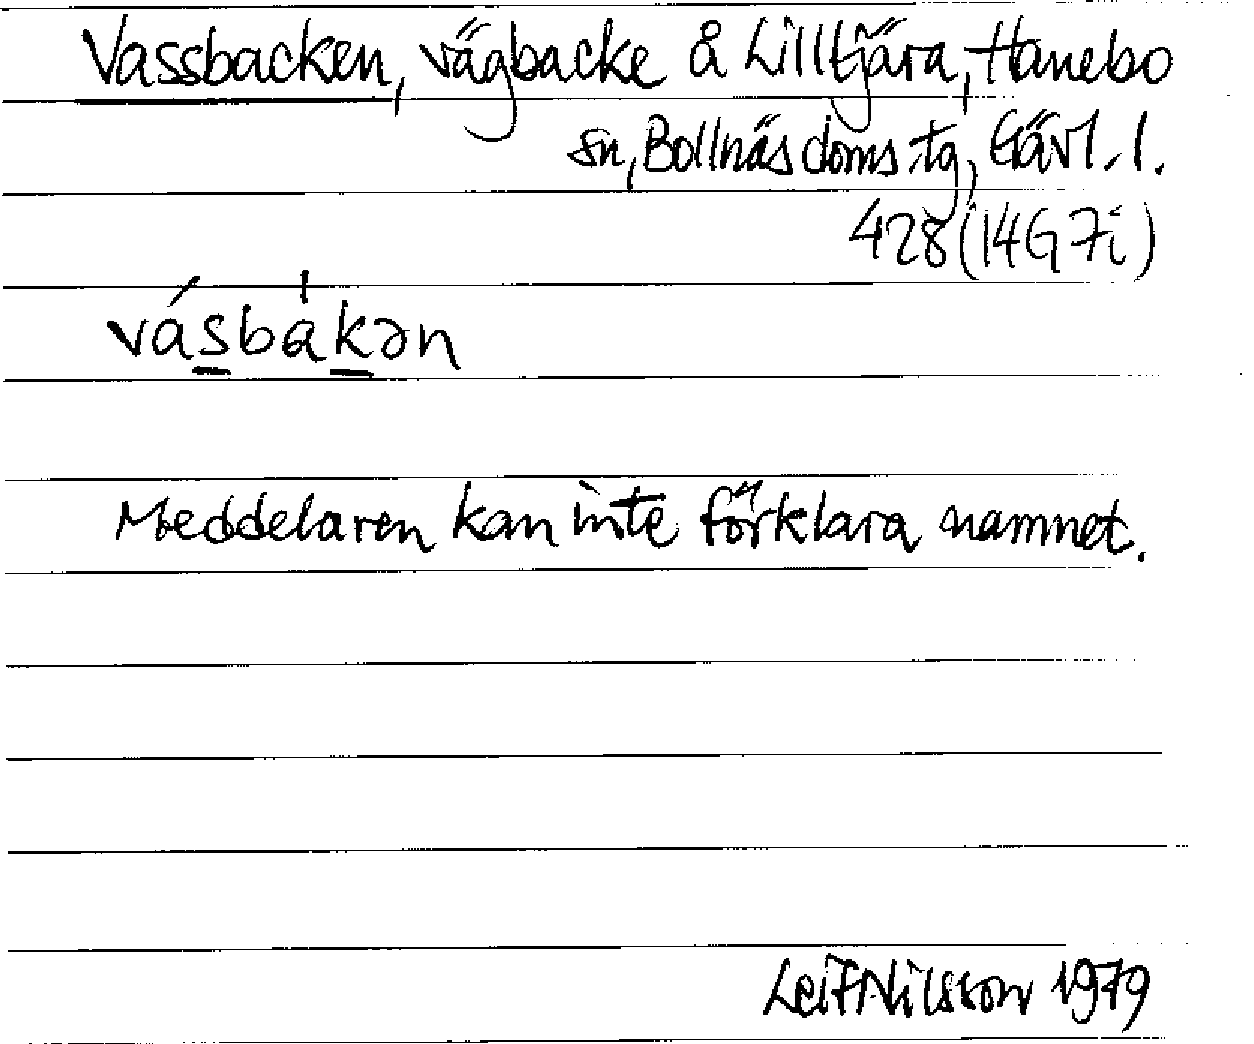 Vassbacken, vägbacke å Lilltjära, Hanebo
sn, Bollnäs doms.tg, Gävl. l.
428 (14G 7i)
vásbákən
Meddelaren kan inte förklara namnet.
Leif Nilsson 1979